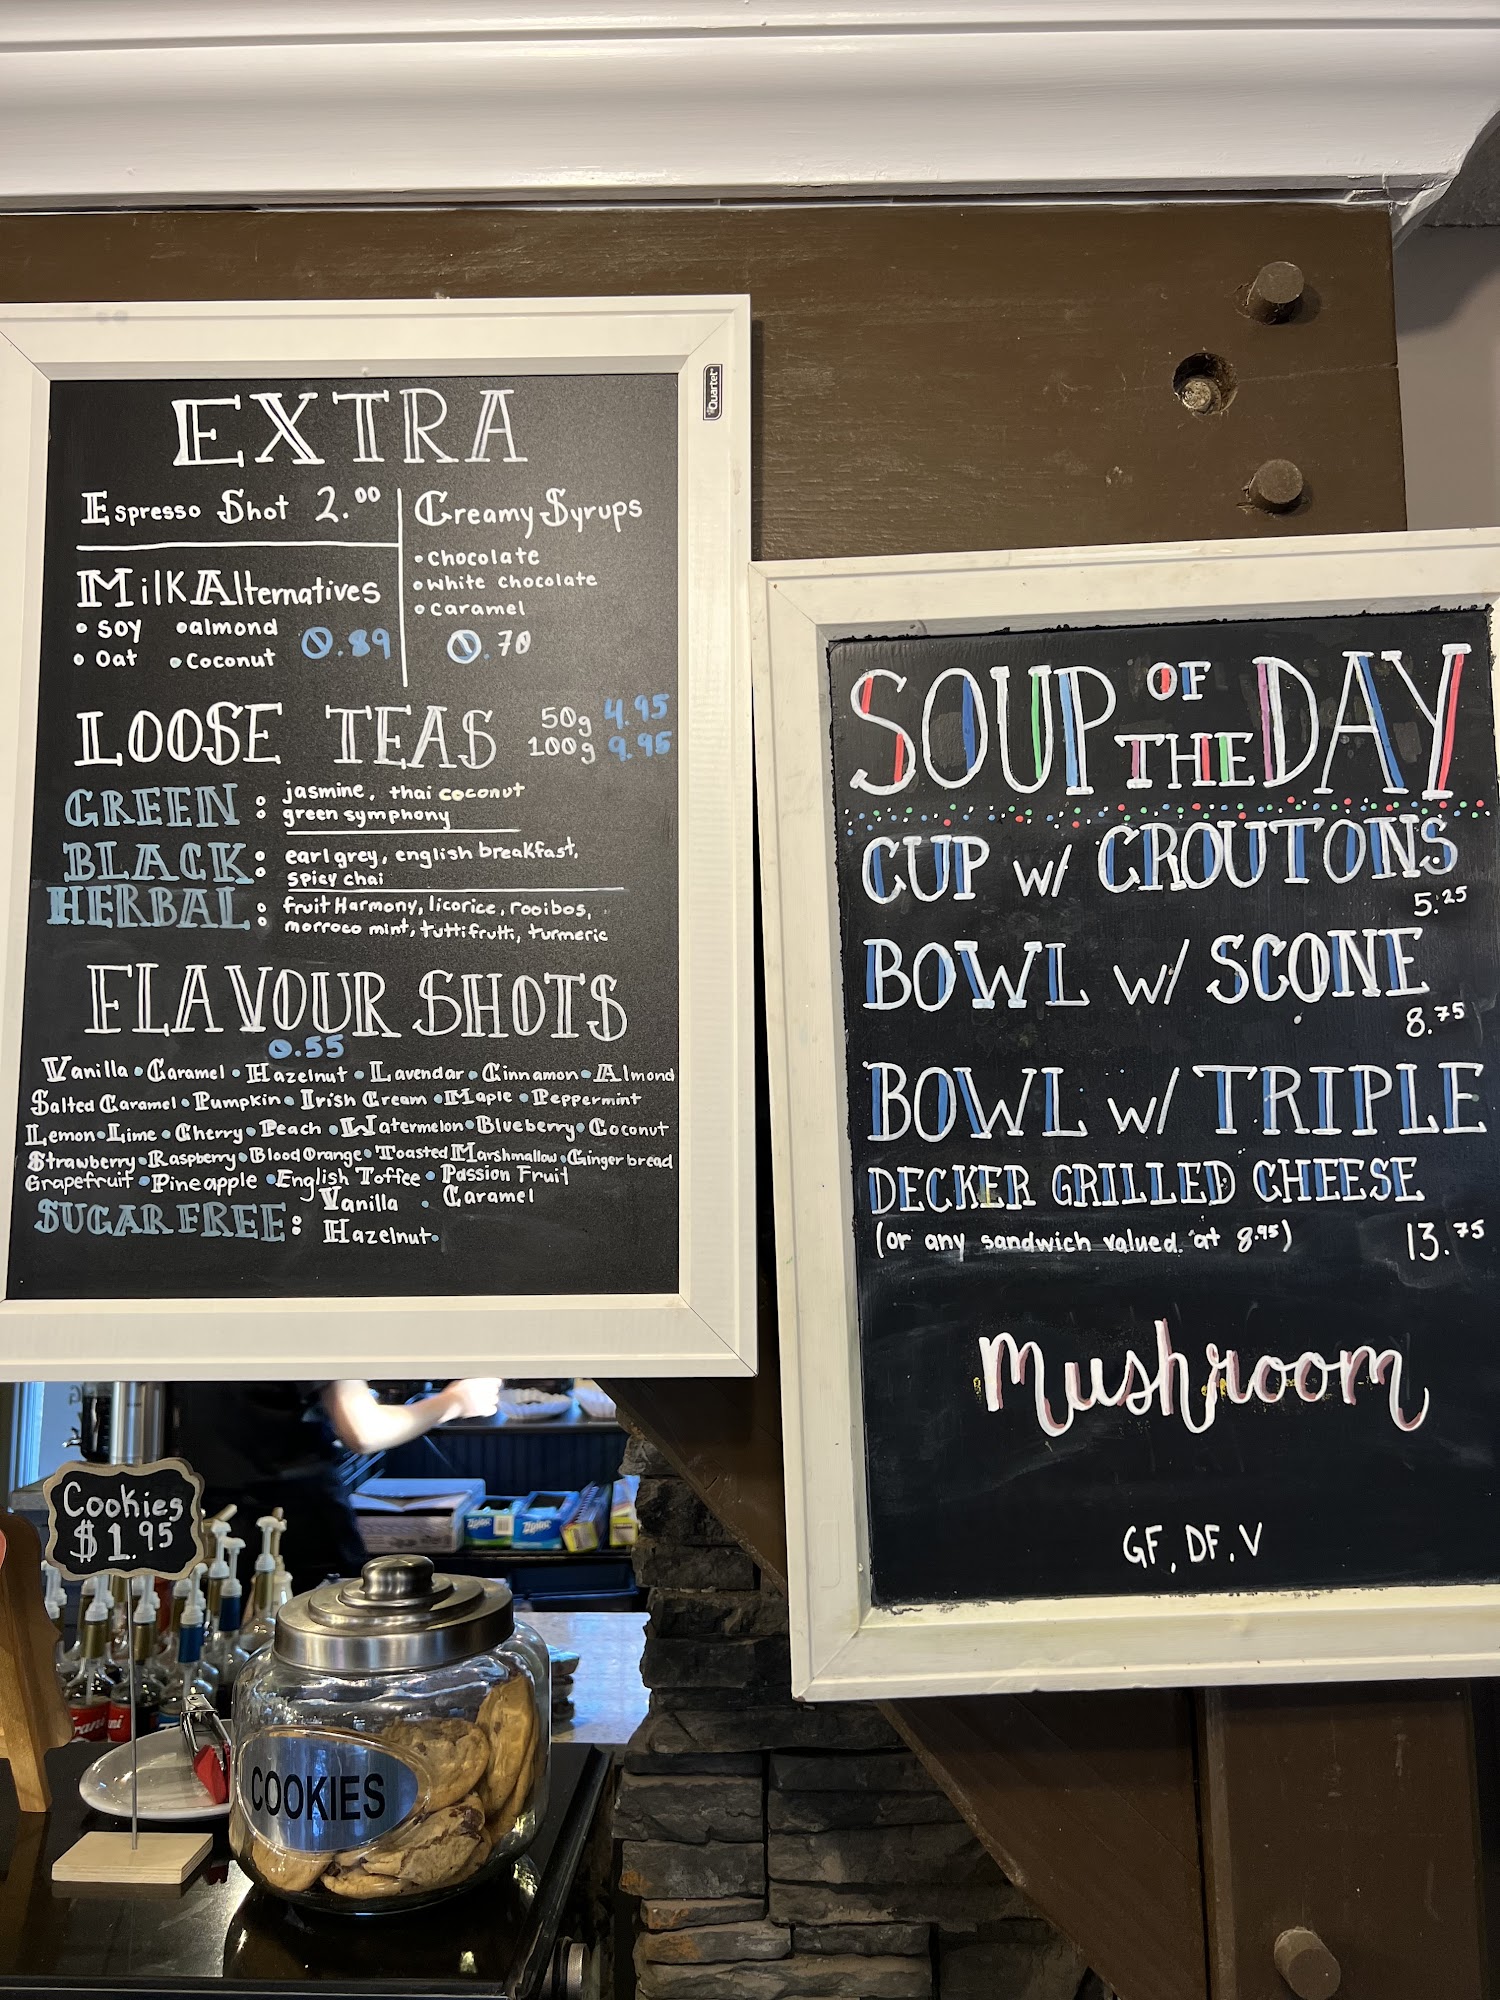 Quartet
EXTRA
Espresso Shot 2.00
Milk Alternatives
• Soy • almond
• Oat • Coconut
0.89
Creamy Syrups
• Chocolate
• White chocolate
• Caramel
0.70
LOOSE TEAS
50g 4.95
100g 9.95
GREEN: jasmine, thai coconut
green symphony
BLACK: earl grey, english breakfast,
spicy chai
HERBAL: fruit Harmony, licorice, rooibos,
morroco mint, tuttifrutti, turmeric
FLAVOUR SHOTS
0.55
Vanilla • Caramel • Hazelnut • Lavendar • Cinnamon • Almond
Salted Caramel • Pumpkin • Irish Cream • Maple • Peppermint
Lemon • Lime • Cherry • Peach • Watermelon • Blueberry • Coconut
Strawberry • Raspberry • Blood Orange • Toasted Marshmallow • Gingerbread
Grapefruit • Pineapple • English Toffee • Passion Fruit
SUGAR FREE: Vanilla • Caramel
Hazelnut •
SOUP OF THE DAY
CUP w/ CROUTONS
5.25
BOWL w/ SCONE
8.75
BOWL w/ TRIPLE
DECKER GRILLED CHEESE
(or any sandwich valued at 8.95) 13.75
Mushroom
GF, DF, V
Cookies
$1.95
COOKIES
Ziploc